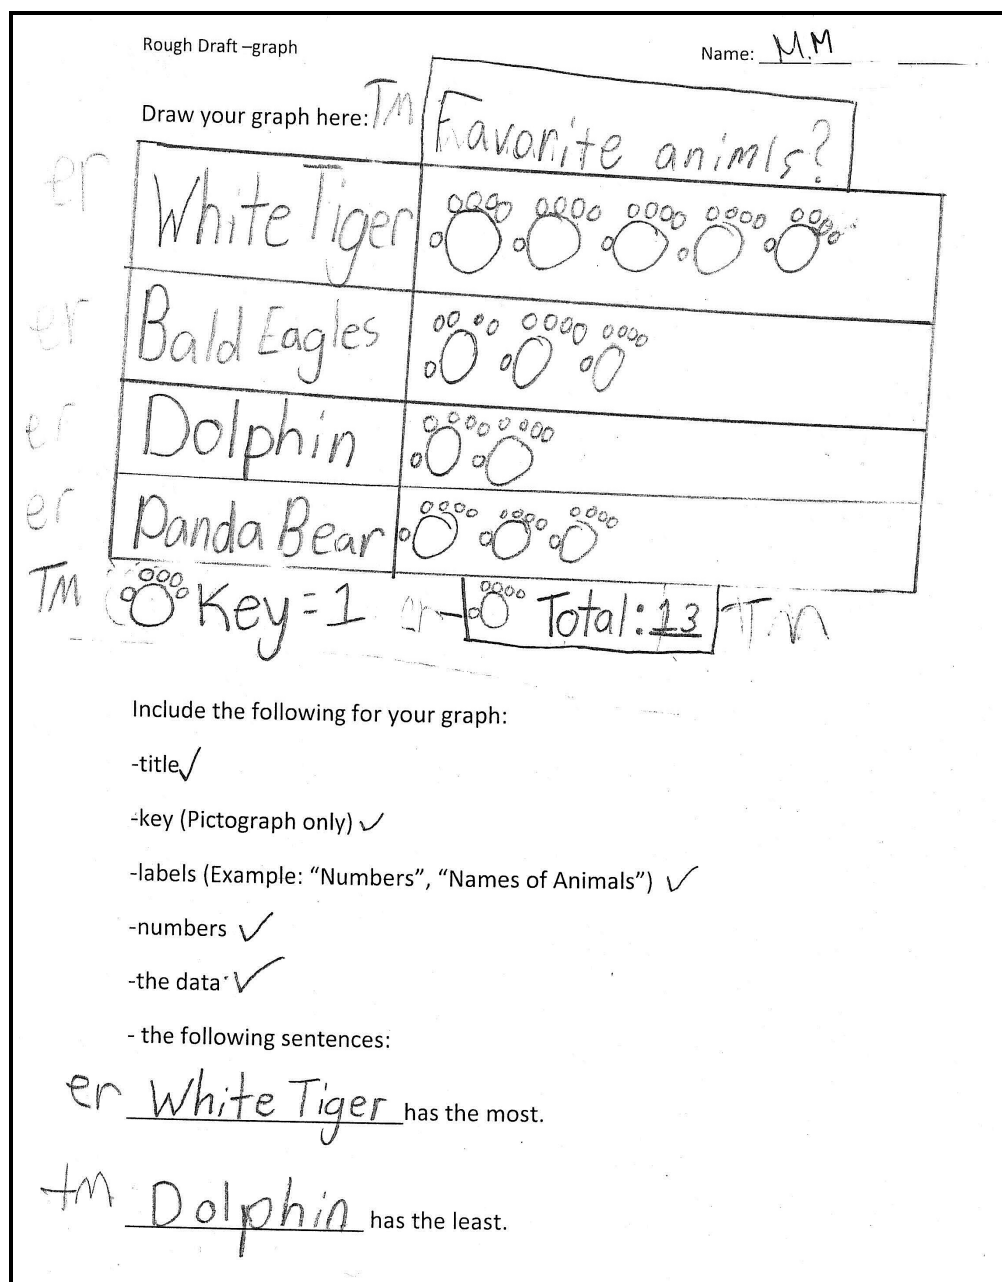 Rough Draft –graph
Name: M.M
Draw your graph here: TM Favorite animls?
er White Tiger
er Bald Eagles
er Dolphin
er Panda Bear
TM Key = 1 er Total: 13 Tm
Include the following for your graph:
-title✓
-key (Pictograph only) ✓
-labels (Example: “Numbers”, “Names of Animals”) ✓
-numbers ✓
-the data ✓
- the following sentences:
er White Tiger has the most.
tm Dolphin has the least.